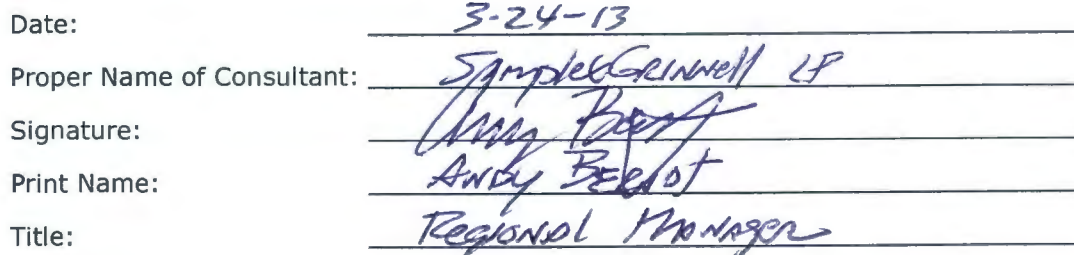 Date: 3-24-13
Proper Name of Consultant: SimplexGrinnell LP
Signature:
Print Name: Andy
Title: Regional Manager